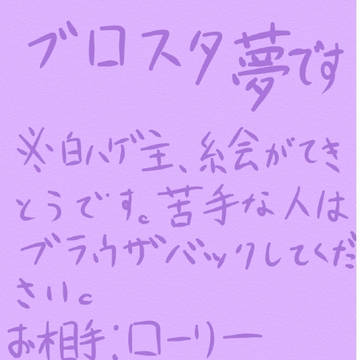 ブロスタ夢です
※白ハゲ主、絵がてき
とうです。苦手な人は
ブラウザバックしてくだ
さい。
お相手:ローリー